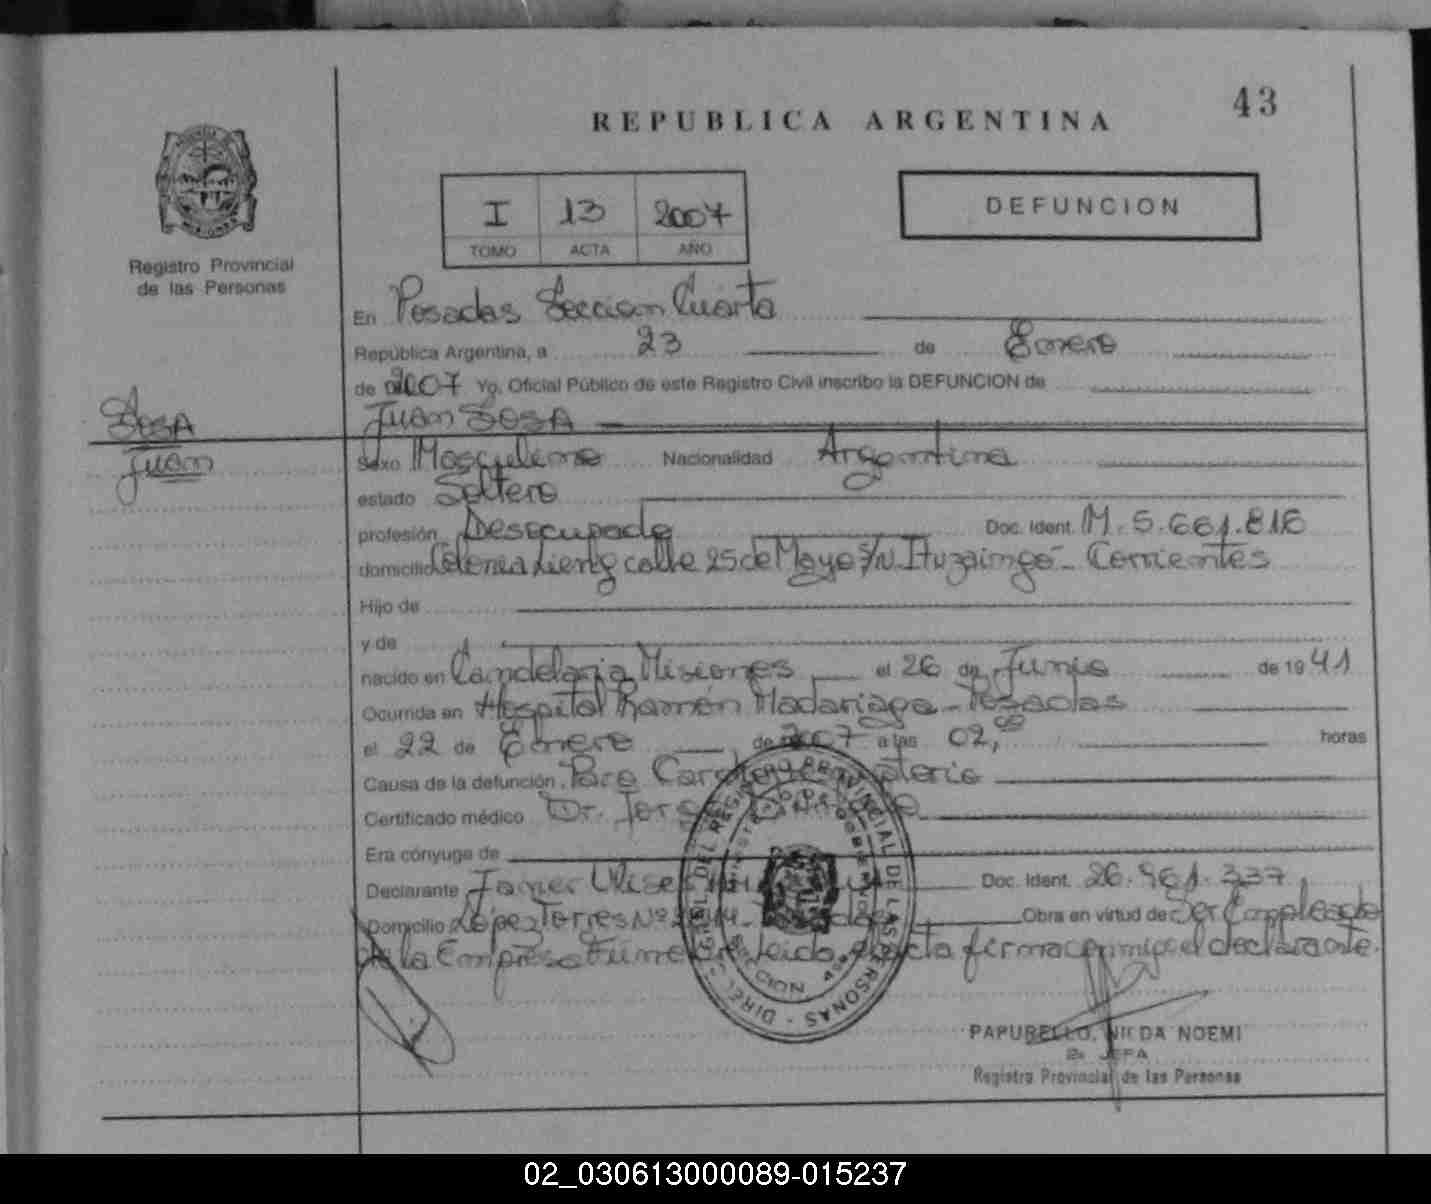 43
REPUBLICA ARGENTINA
I 13 2007
TOMO ACTA AÑO
DEFUNCION
Registro Provincial
de las Personas
En Posadas Seccion Cuarta
República Argentina, a 23 de Enero
de 2007 Yo, Oficial Público de este Registro Civil inscribo la DEFUNCION de
Sosa
Juan
Juan Sosa
Sexo Masculino Nacionalidad Argentina
estado Soltero
profesión Desocupado Doc. Ident. M. 5.661.816
domicilio Colonia calle 25 de Mayo S/N. Ituzaingó - Corrientes
Hijo de
y de
nacido en Candelaria Misiones el 26 de Junio de 1941
Ocurrida en Hospital Ramón Madariaga - Posadas
el 22 de Enero de 2007 a las 02,00 horas
Causa de la defunción Paro Cardiorespiratorio
Certificado médico Dr. Jorge
Era cónyuge de
Declarante Javier Ulises Doc. Ident. 26.961.337
Domicilio López Torres Nº Obra en virtud de Ser Empleado
de la Empresa Funebre. Leida el acta firma conmigo el declarante.
DIREC. GRAL. DEL REGISTRO PROVINCIAL DE LAS PERSONAS
MINISTERIO DE GOBIERNO
SECCION 4ª
PAPURELLO, NILDA NOEMI
2ª JEFA
Registro Provincial de las Personas
02_030613000089-015237